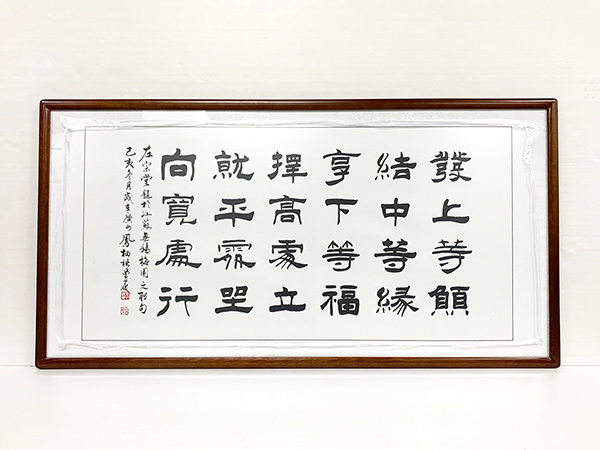 發上等願
結中等緣
享下等福
擇高處立
就平處坐
向寬處行
左宗棠題於江蘇無錫梅園之聯句
己亥冬月歲在廣州鳳